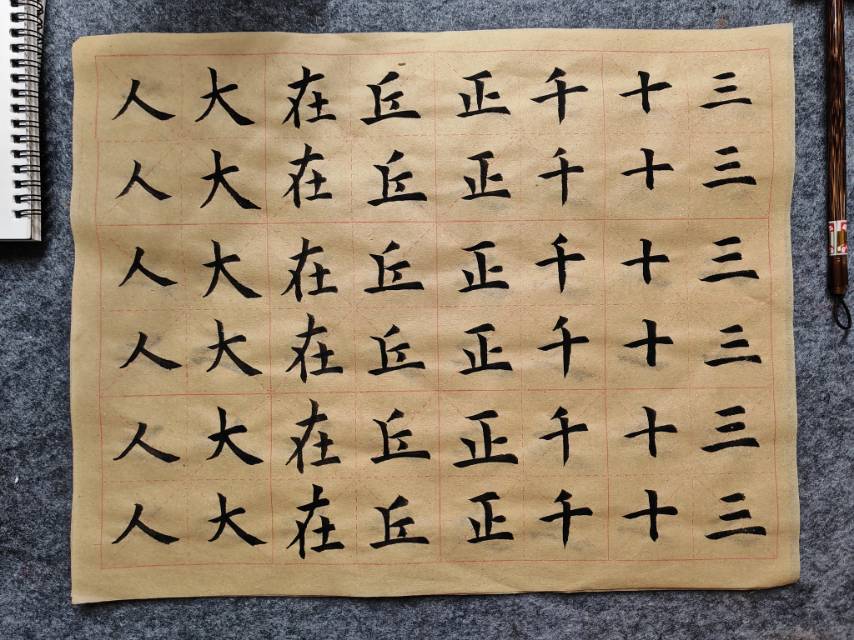 三三三三三三
十十十十十十
千千千千千千
正正正正正正
丘丘丘丘丘丘
在在在在在在
大大大大大大
人人人人人人